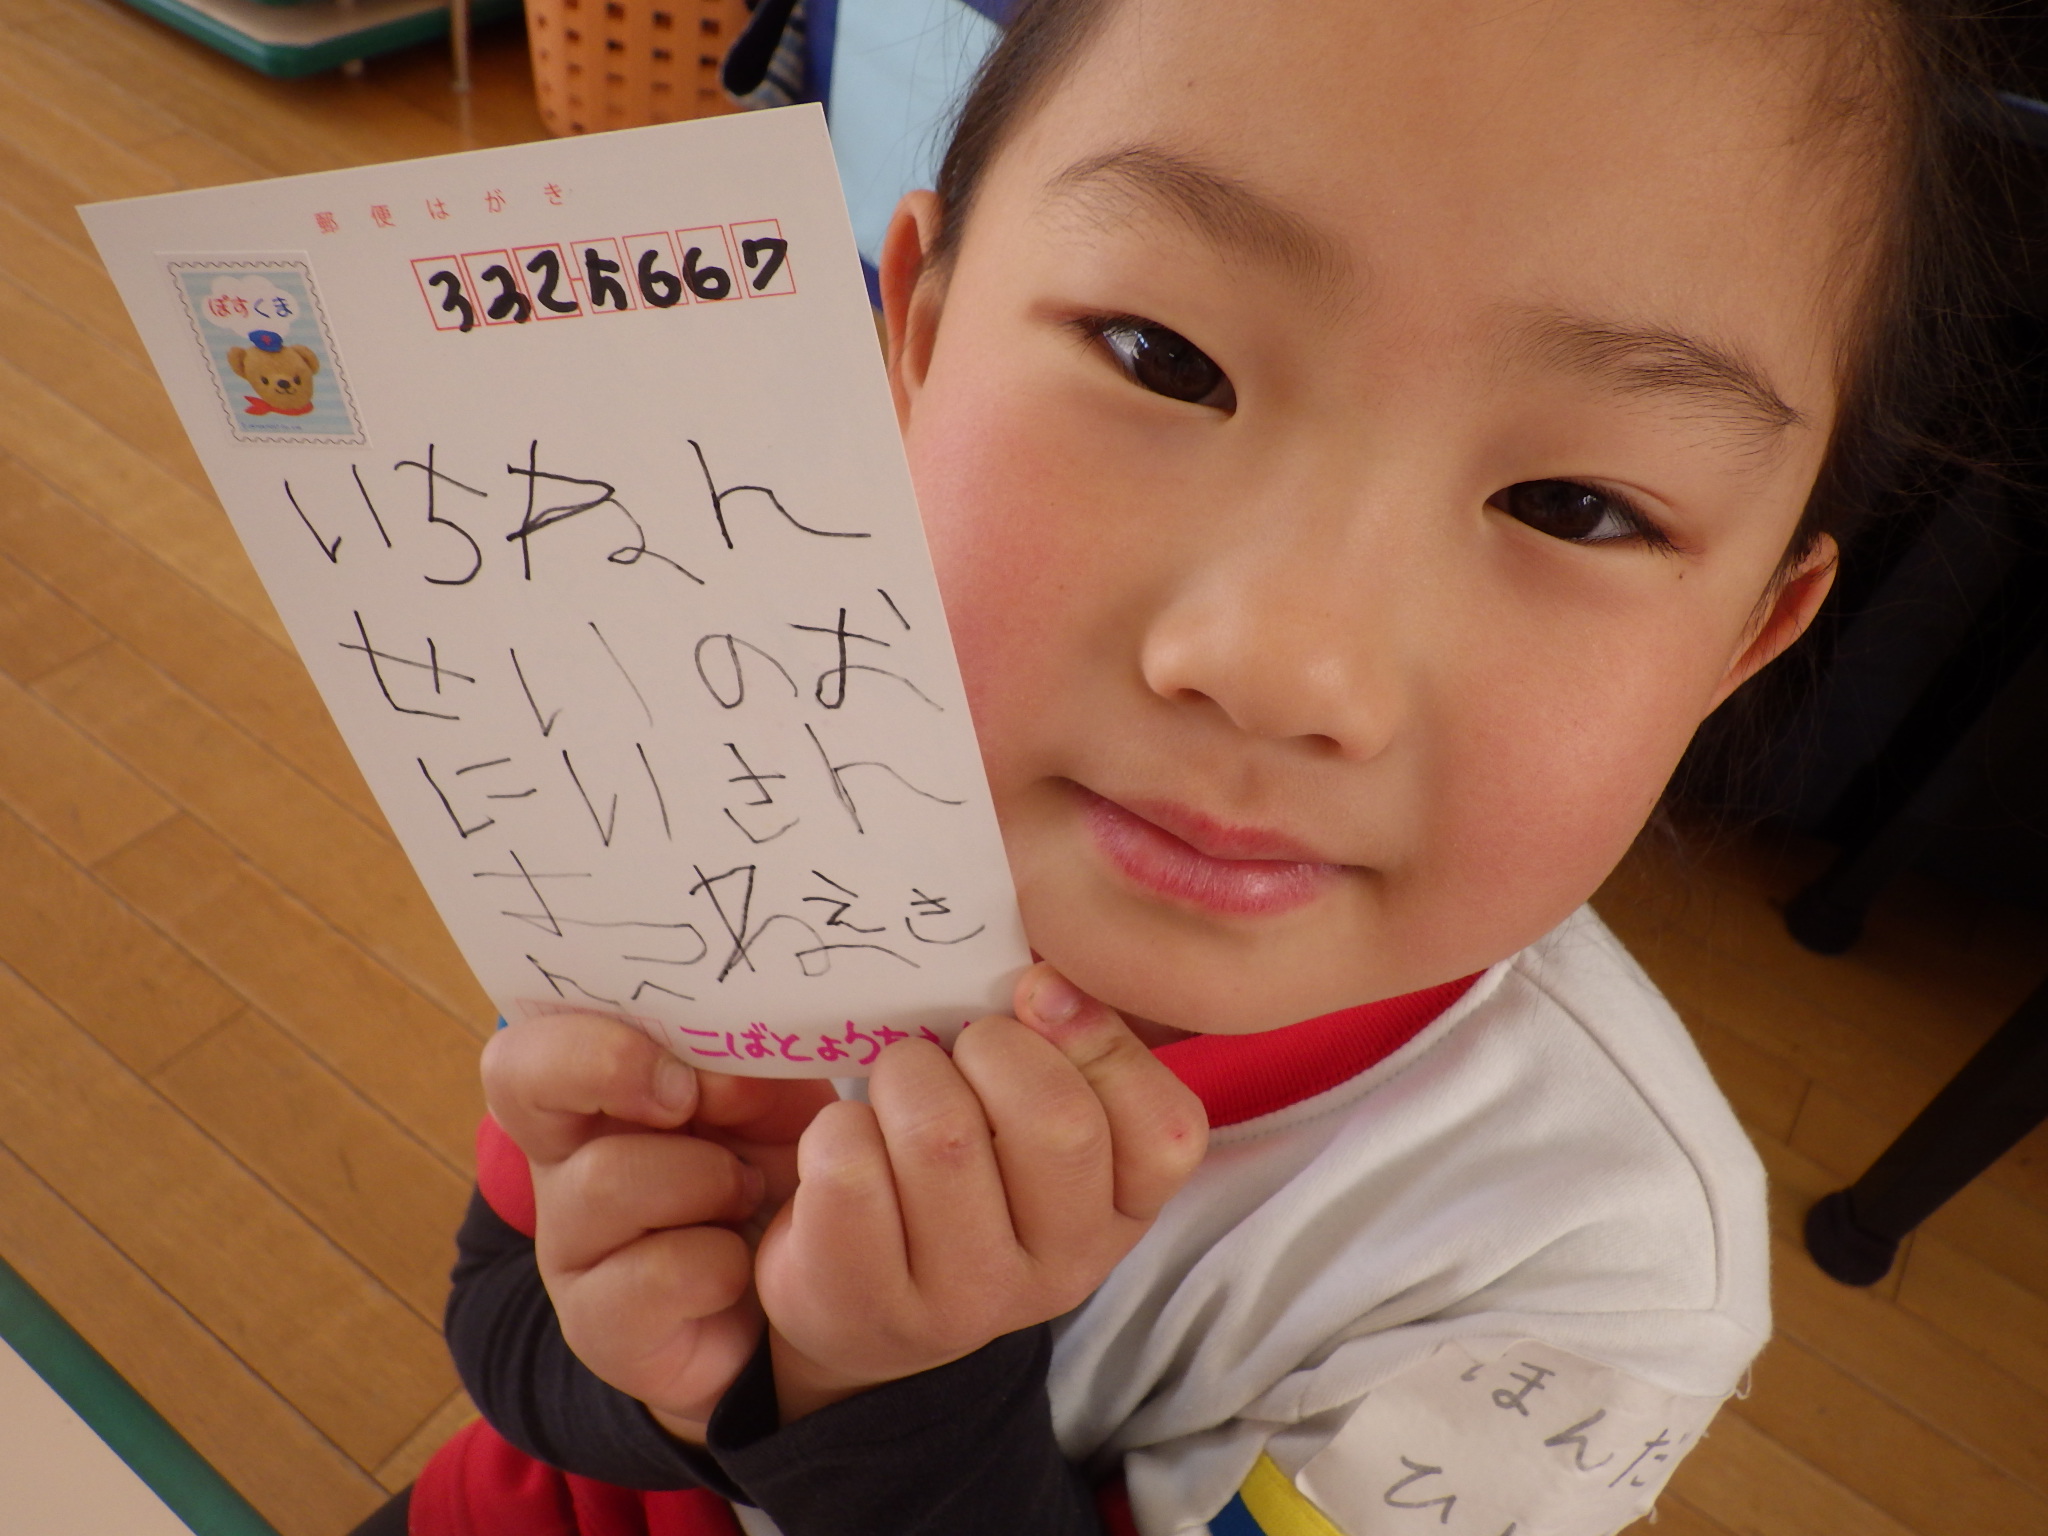 郵便はがき
3325667
ぽすくま
いちねん
せいのお
にいさん
おねえさ
んへ
こばとようちえ
ほんだ
ひ